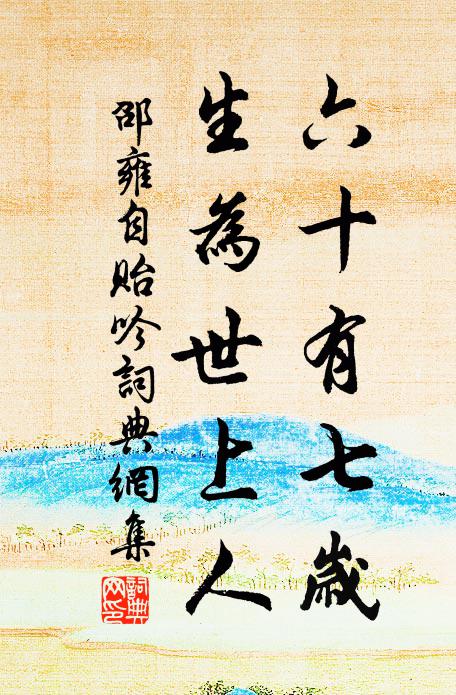 六十有七歲
生為世上人
邵雍自貽吟詞典網集
詞典
网印